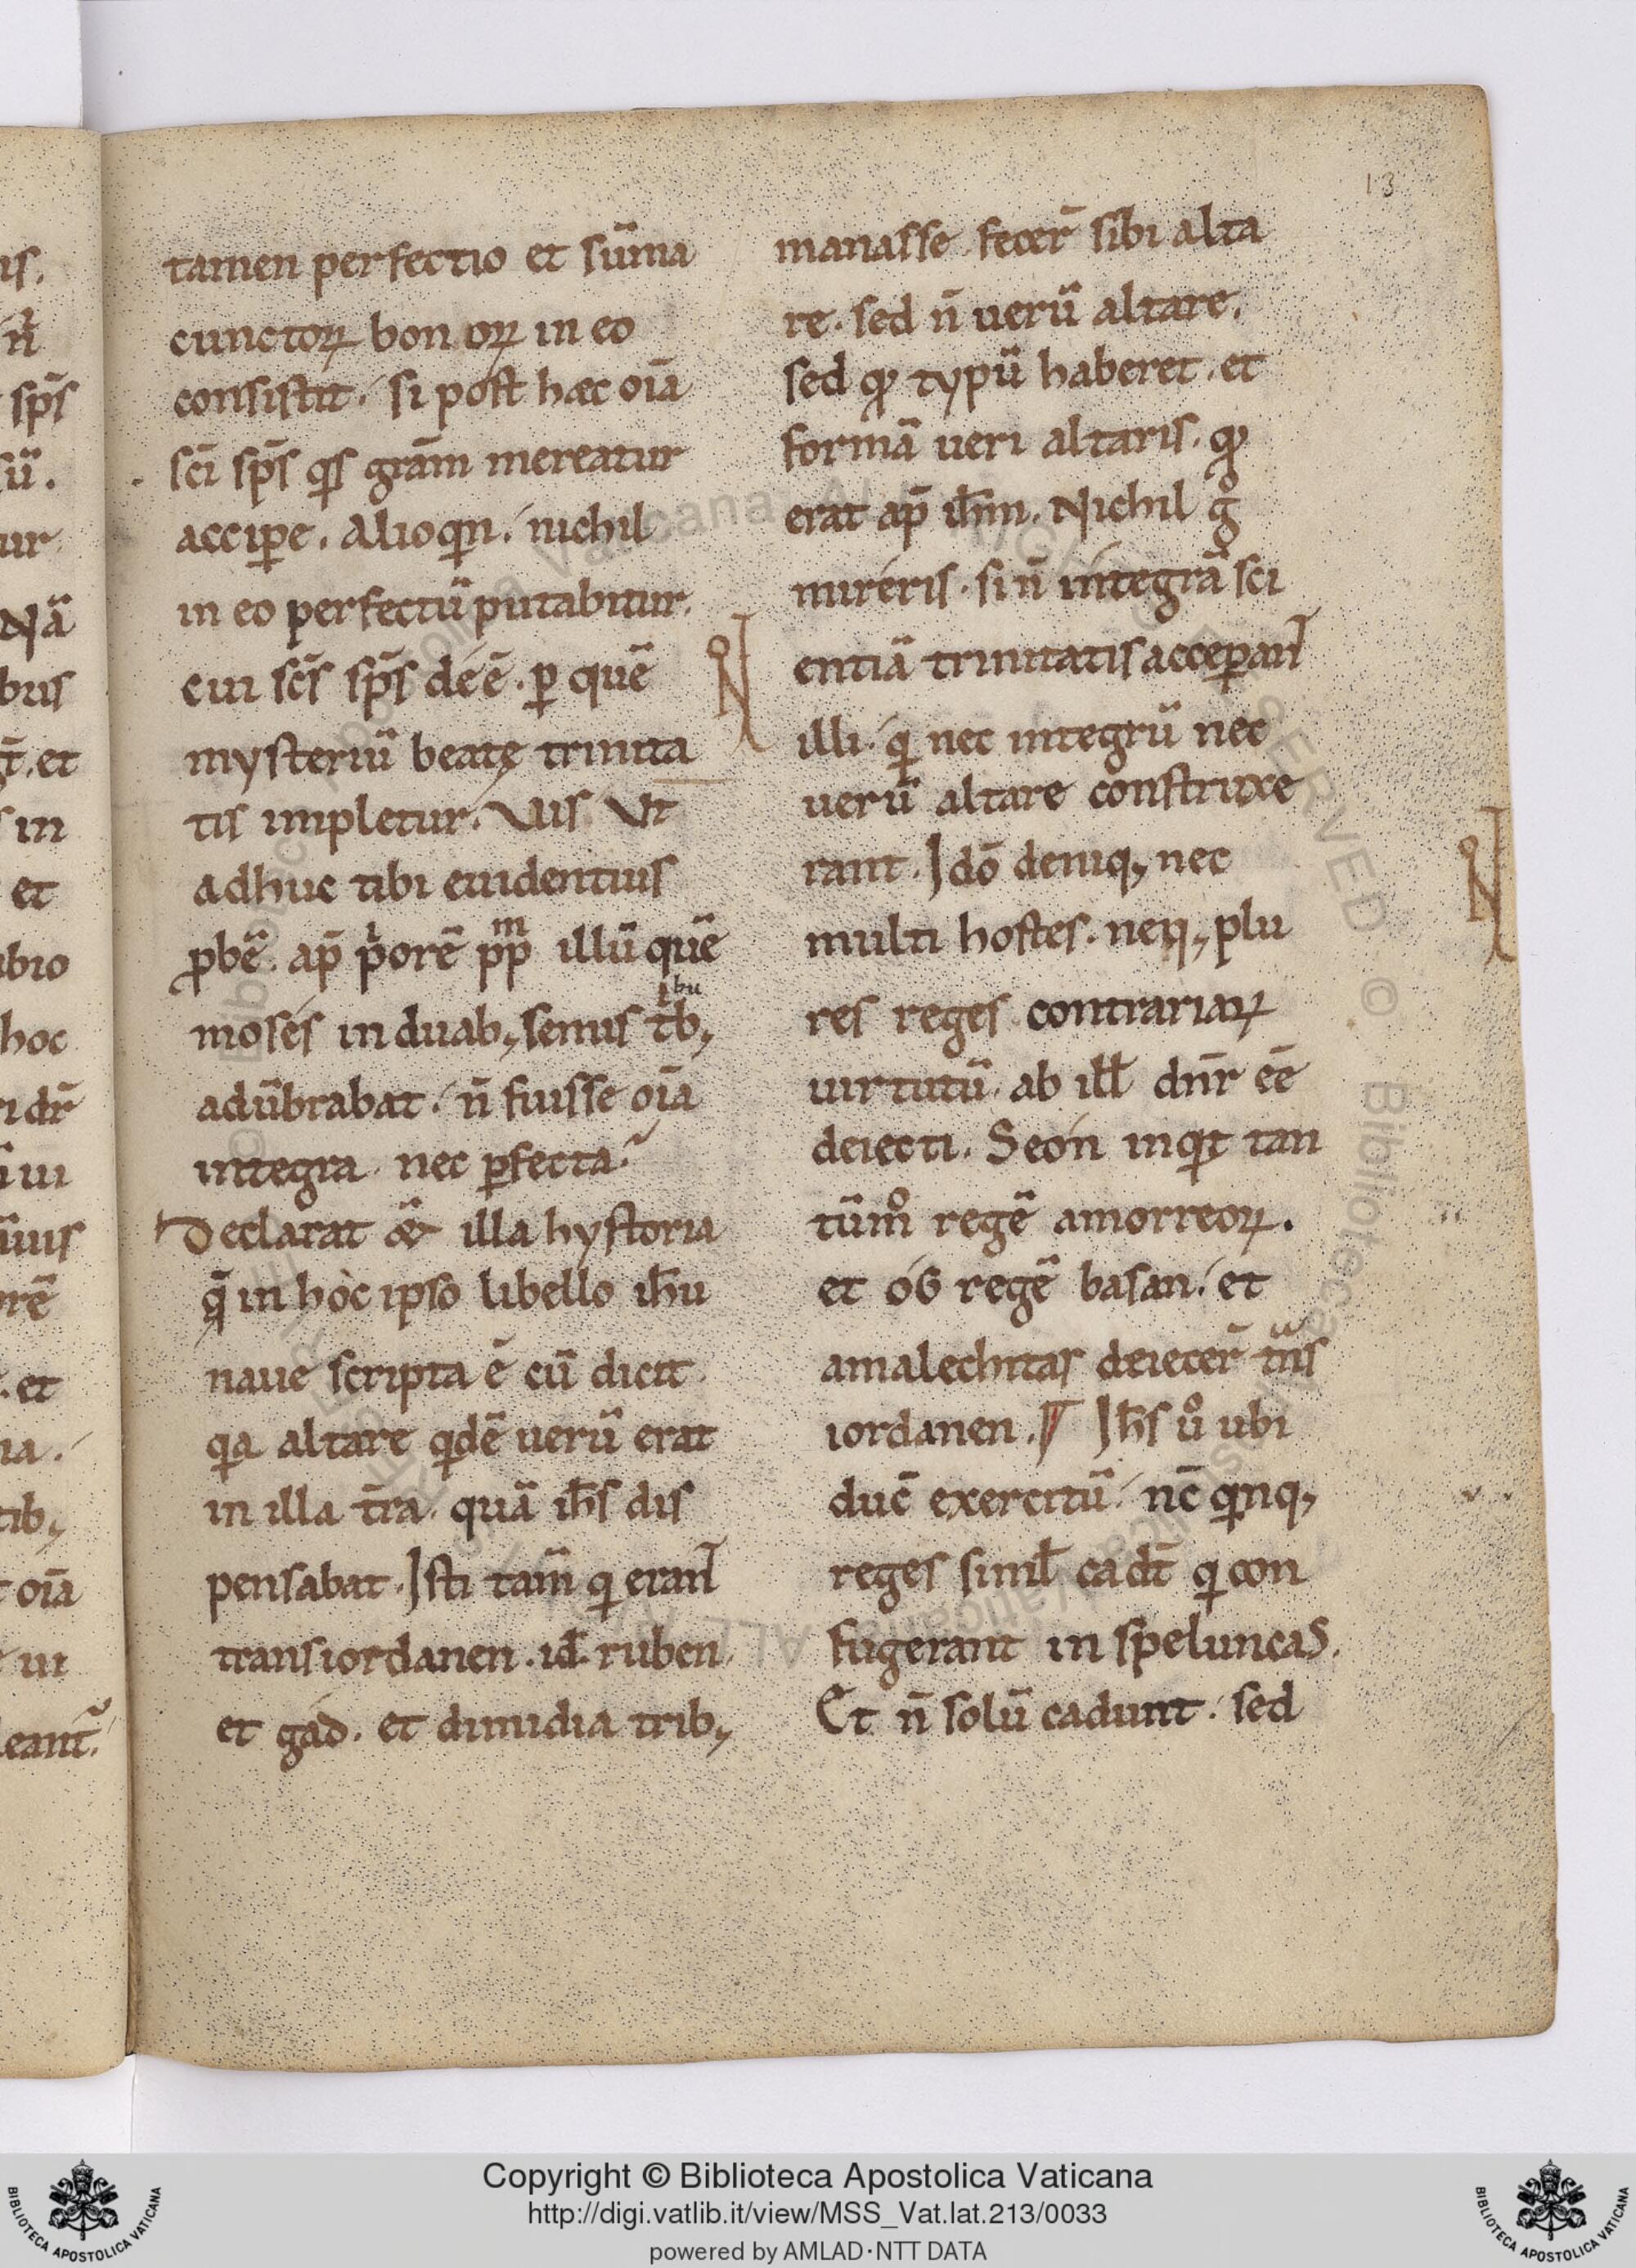 13
is.
n̄
sp̄s
sū.
ur
Nā
bus
et
in
et
ubio
hoc
dr̄
ui
uius
orē
et
na.
tib;
oīa
ui
eant.
tamen perfectio et sūma
cunctoꝝ bonoꝝ in eo
consistit. si post hæc oīa
sc̄i sp̄s q̇s grām mereatur
acciꝑe. Alioqin. nichil
in eo perfectū putabitur.
cui sc̄s sp̄s deē. ꝑ quē
mysteriū beatę trinita
tis impletur. Vis Vt
adhuc tibi euidentius
ꝓbē. ap̄ pͥorē pp̄m illū quē
moses in duab; semis tͥb;
bu
adūbrabat. n̄ fuisse oīa
integra. nec ꝑfecta.
Declarat & illa hystoria
q̄ in hoc ipso libello ih̄u
naue scripta ē cū dicit
qa altare qdē uerū erat
in illa t̄ra. quā ih̄s dis
pensabat. Isti tam̄ qi erant
transiordanen. id. ruben.
et gad. et dimidia trib;
manasse fecer̄ sibi alta
re. sed n̄ uerū altare.
sed qͦ typū haberet. et
formā ueri altaris. qͦ
erat ap̄ ih̄m. Nichil gͦ
mireris. si n̄ integrā sci
entiā trinitatis acceꝑant
illi. qi nec integrū nec
uerū altare construxe
rant. Idō deniq; nec
multi hostes. neq; plu
res reges contrariaꝝ
uirtutū. ab ill̄ dn̄r eē
deiecti. Seon inqit tan
tūmͦ regē amorreoꝝ.
et og regē basan. et
amalechitas deiecer̄ tn̄s
iordanen. Ih̄s uͦ ubi
duc̄ exercitū. nc̄ qinq;
reges simul̄ cadt̄ qi con
fugerant in speluncas.
Et n̄ solū cadunt. sed
Copyright © Biblioteca Apostolica Vaticana
http://digi.vatlib.it/view/MSS_Vat.lat.213/0033
powered by AMLAD·NTT DATA
BIBLIOTECA APOSTOLICA VATICANA
BIBLIOTECA APOSTOLICA VATICANA